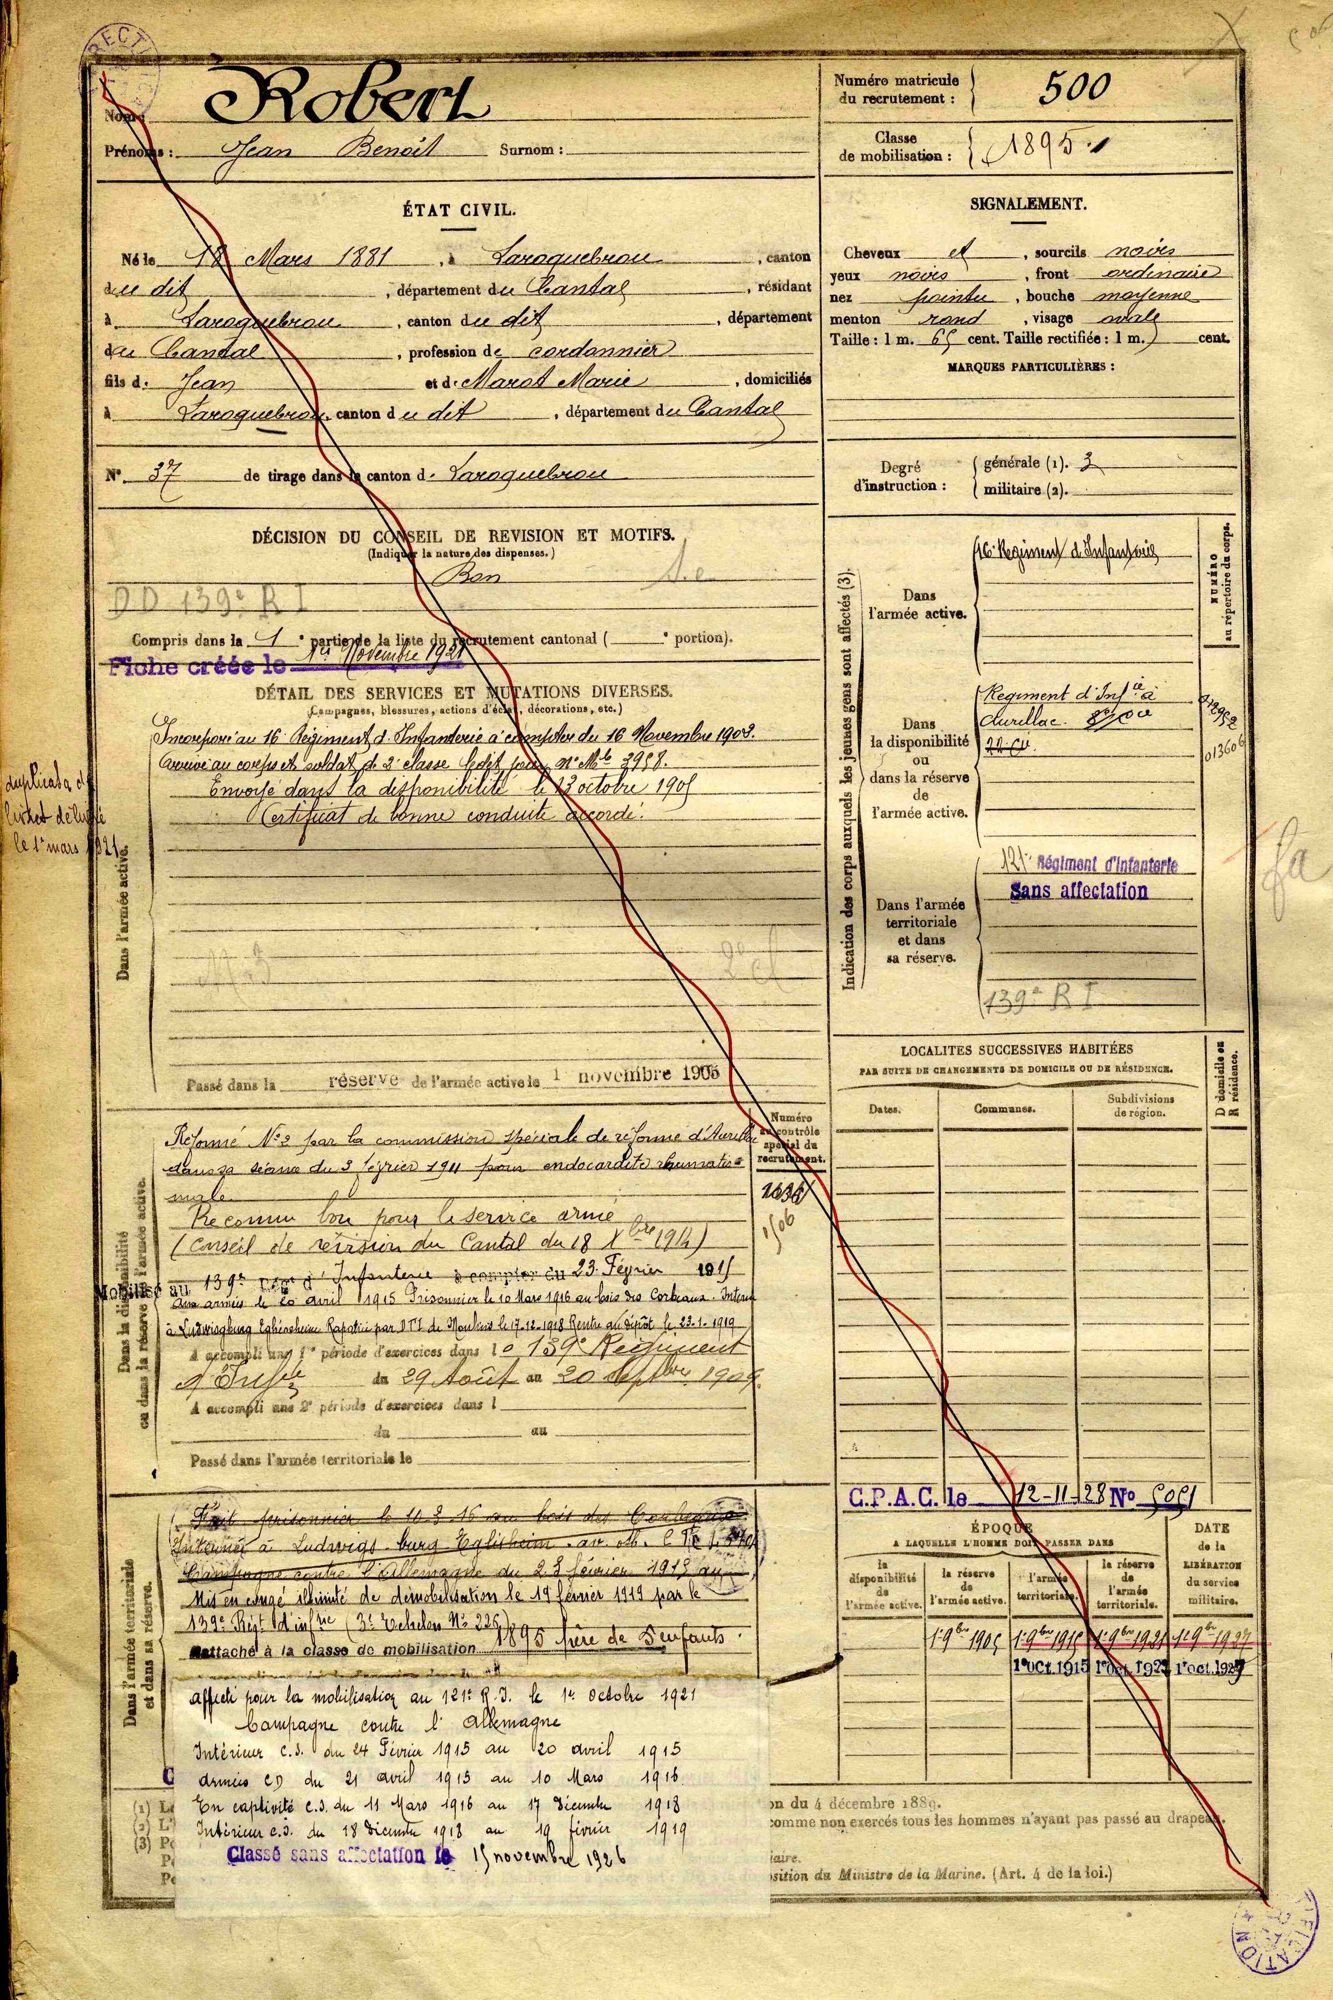 Nom : Robert
Prénoms : Jean Benoît Surnom :
Numéro matricule
du recrutement : 500
Classe
de mobilisation : 1895
ÉTAT CIVIL.
Né le 18 Mars 1881, à Laroquebrou, canton
du dit, département du Cantal, résidant
à Laroquebrou, canton du dit, département
du Cantal, profession de cordonnier
fils de Jean et de Marot Marie, domiciliés
à Laroquebrou, canton du dit, département du Cantal
N° 37 de tirage dans le canton de Laroquebrou
SIGNALEMENT.
Cheveux et, sourcils noirs
yeux noirs, front ordinaire
nez pointu, bouche moyenne
menton rond, visage ovale
Taille : 1 m. 65 cent. Taille rectifiée : 1 m. cent.
MARQUES PARTICULIÈRES :
Degré
d'instruction :
générale (1). 3
militaire (2).
DÉCISION DU CONSEIL DE REVISION ET MOTIFS.
(Indiquer la nature des dispenses.)
Bon
DD 139e RI
Compris dans la 1e partie de la liste du recrutement cantonal ( e portion).
Fiche créée le 1er Novembre 1921
DÉTAIL DES SERVICES ET MUTATIONS DIVERSES.
(Campagnes, blessures, actions d'éclat, décorations, etc.)
duplicata de
livret délivré
le 1er mars 1921
Dans l'armée active.
Incorporé au 16e Régiment d'Infanterie à compter du 16 Novembre 1902.
Arrivé au corps et soldat de 2e classe le dit jour n° Mle 3958.
Envoyé dans la disponibilité le 13 octobre 1905
Certificat de bonne conduite accordé.
2e cl
Passé dans la réserve de l'armée active le 1 novembre 1905
Indication des corps auxquels les jeunes gens sont affectés (3).
NUMÉRO
au répertoire du corps.
Dans
l'armée active.
16e Régiment d'Infanterie
Dans
la disponibilité
ou
dans la réserve
de
l'armée active.
Régiment d'Infie à
Aurillac.
013606
Dans l'armée
territoriale
et dans
sa réserve.
121e Régiment d'Infanterie
Sans affectation
139e RI
LOCALITES SUCCESSIVES HABITÉES
PAR SUITE DE CHANGEMENTS DE DOMICILE OU DE RÉSIDENCE.
D domicile ou
R résidence.
Dates.
Communes.
Subdivisions
de région.
Dans la disponibilité
ou dans la réserve de l'armée active.
Numéro
au contrôle
spécial du
recrutement.
1506
Réformé N° 2 par la commission spéciale de réforme d'Aurillac
dans sa séance du 3 février 1911 pour endocardite rhumatis-
male
Reconnu bon pour le service armé
(Conseil de révision du Cantal du 18 Xbre 1914)
Mobilisé au 139e Régt d'Infanterie à compter du 23 Février 1915
Aux armées le 20 avril 1915 Prisonnier le 10 Mars 1916 au bois des Corbeaux. Interné
à Ludwigsburg Eglosheim Rapatrié par DTI de Moulins le 17-12-1918 Rentré au dépôt le 23-1-1919
A accompli une 1e période d'exercices dans le 139e Régiment
d'Infie du 29 Août au 20 septbre 1909.
A accompli une 2e période d'exercices dans l
du au
Passé dans l'armée territoriale le
C.P.A.C. le 12-11-28 No 5051
Dans l'armée territoriale
et dans sa réserve.
Fait prisonnier le 10 3 16 au bois des Corbeaux
Interné à Ludwigs-burg Eglosheim
Campagne contre l'Allemagne du 23 février 1915 au
Mis en congé illimité de démobilisation le 19 février 1919 par le
139e Régt d'infie (3e échelon N° 226)
Rattaché à la classe de mobilisation 1895 père de 5 enfants.
affecté pour la mobilisation au 121e R.I. le 1er octobre 1921
Campagne contre l'Allemagne
Intérieur C.S. du 24 Février 1915 au 20 avril 1915
armées CD du 21 avril 1915 au 10 Mars 1916
En captivité C.S. du 11 Mars 1916 au 17 Décembre 1918
Intérieur C.S. du 18 Décembre 1918 au 19 février 1919
Classé sans affectation le 15 novembre 1926
ÉPOQUE
A LAQUELLE L'HOMME DOIT PASSER DANS
DATE
de la
LIBÉRATION
du service
militaire.
la
disponibilité
de
l'armée active.
la réserve
de
l'armée active.
l'armée
territoriale.
la réserve
de
l'armée
territoriale.
1er 9bre 1905 1er 9bre 1915 1er 9bre 1921 1er 9bre 1927
1er oct. 1915 1er oct. 192 1er oct. 192
(1)
(2)
(3)
on du 4 décembre 1889.
comme non exercés tous les hommes n'ayant pas passé au drapeau.
iaire.
osition du Ministre de la Marine. (Art. 4 de la loi.)